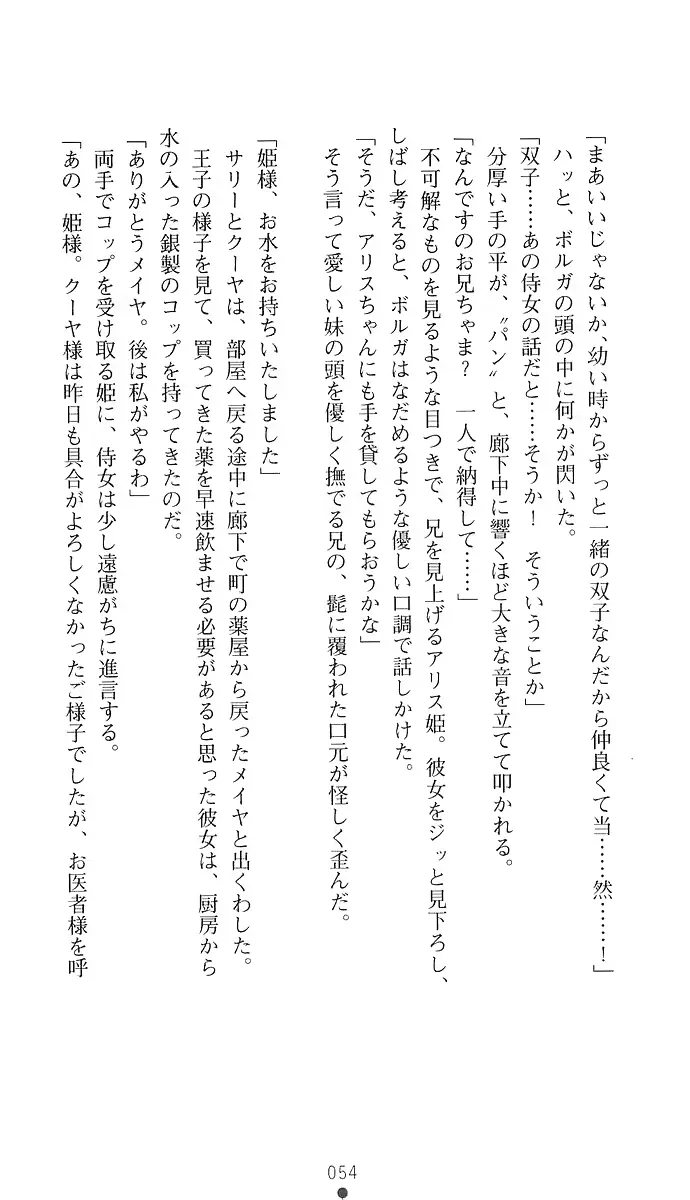 「まあいいじゃないか、幼い時からずっと一緒の双子なんだから仲良くて当……然……！」
ハッと、ボルガの頭の中に何かが閃いた。
「双子……あの侍女の話だと……そうか！　そういうことか」
分厚い手の平が、〝パン〟と、廊下中に響くほど大きな音を立てて叩かれる。
「なんですのお兄ちゃま？　一人で納得して……」
不可解なものを見るような目つきで、兄を見上げるアリス姫。彼女をジッと見下ろし、
しばし考えると、ボルガはなだめるような優しい口調で話しかけた。
「そうだ、アリスちゃんにも手を貸してもらおうかな」
そう言って愛しい妹の頭を優しく撫でる兄の、髭に覆われた口元が怪しく歪んだ。
「姫様、お水をお持ちいたしました」
サリーとクーヤは、部屋へ戻る途中に廊下で町の薬屋から戻ったメイヤと出くわした。
王子の様子を見て、買ってきた薬を早速飲ませる必要があると思った彼女は、厨房から
水の入った銀製のコップを持ってきたのだ。
「ありがとうメイヤ。後は私がやるわ」
両手でコップを受け取る姫に、侍女は少し遠慮がちに進言する。
「あの、姫様。クーヤ様は昨日も具合がよろしくなかったご様子でしたが、お医者様を呼
054